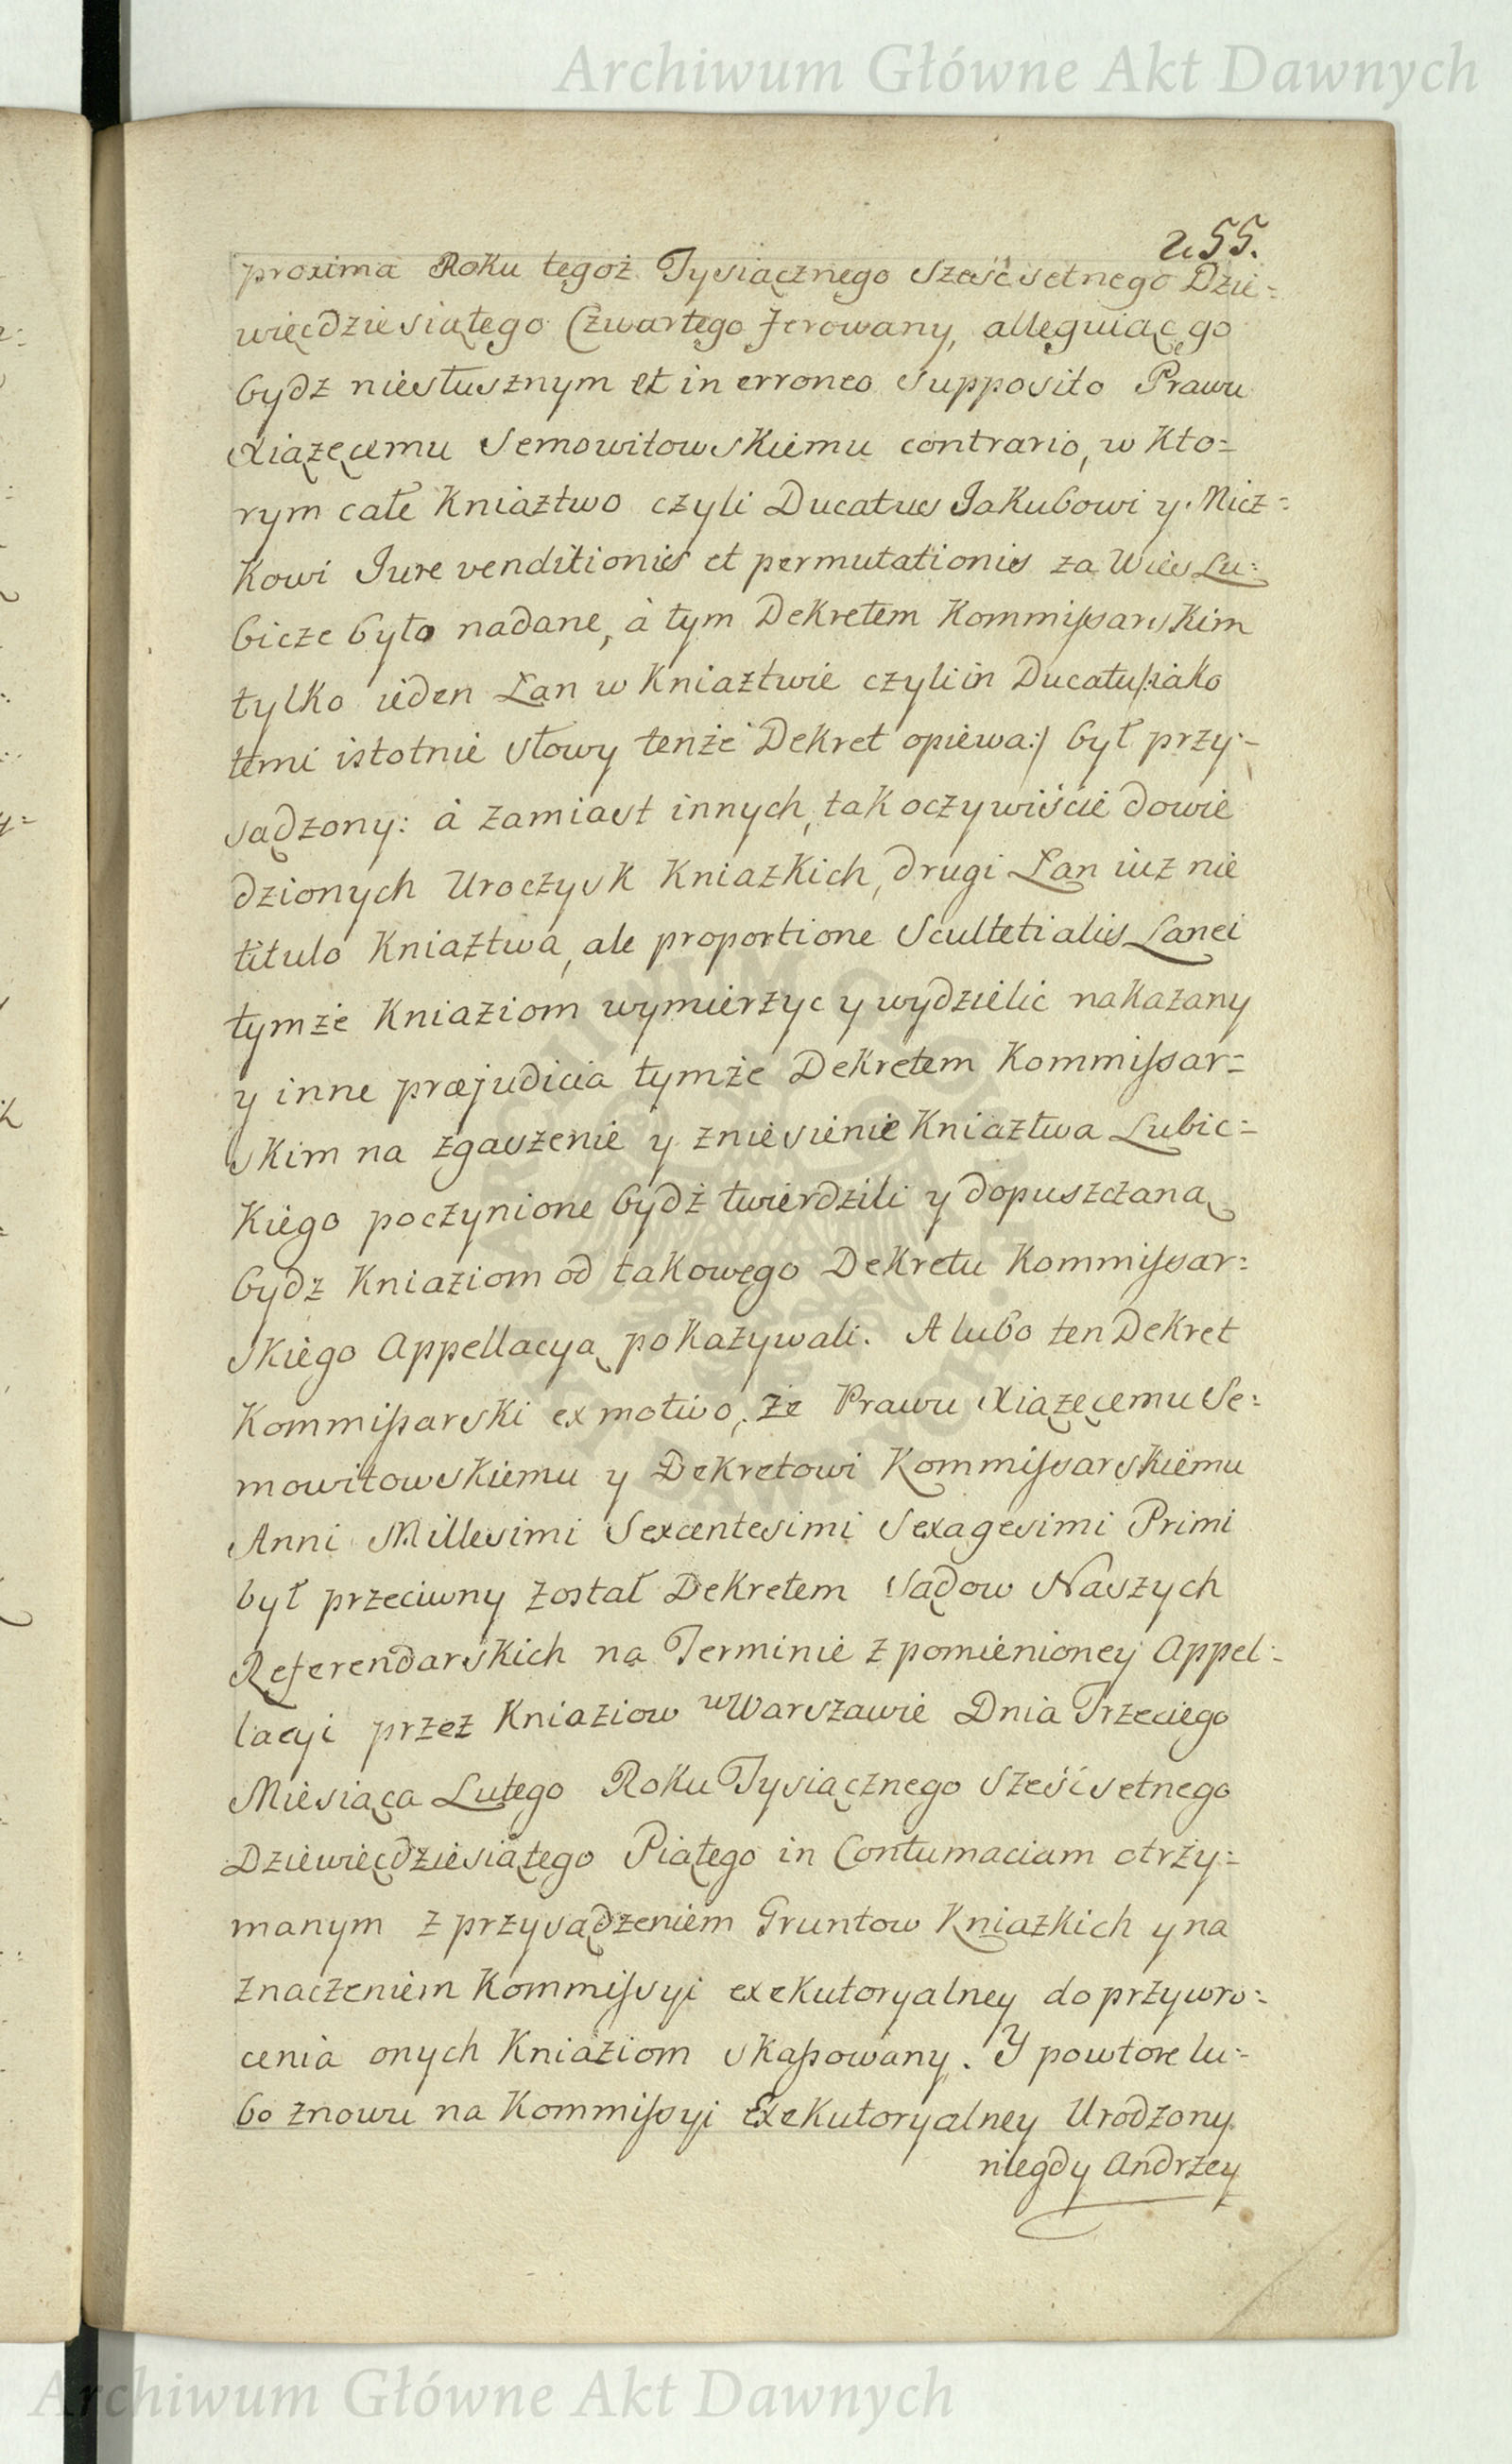 Archiwum Główne Akt Dawnych
255.
proxima Roku tegoż Tysiącznego Szesćsetnego Dzie=
więćdziesiątego Czwartego ferowany, alleguiąc go
bydz niesłusznym et in erroneo supposito Prawu
Xiążęcemu Semowitowskiemu contrario, w kto=
rym całe Kniaztwo czyli Ducatus Jakubowi y Micz=
kowi Jure venditionis et permutationis za Wies Lu=
bicze było nadane, à tym Dekretem Kommissarskim
tylko ieden Łan w Kniaztwie czyli in Ducatu /:iako
temi istotnie słowy tenże Dekret opiewa:/ był przy=
sądzony: à zamiast innych, tak oczywiście dowie
dzionych Uroczysk Kniazkich, drugi Łan iuz nie
titulo Kniaztwa, ale proportione Scultetialis Lanei
tymże Kniaziom wymierzyc y wydzielic nakazany
y inne præjudicia tymże Dekretem Kommissar=
skim na zgaszenie y zniesienie Kniaztwa Lubic=
kiego poczynione bydź twierdzili y dopuszczaną
bydz Kniaziom od takowego Dekretu Kommissar=
skiego Appellacyą pokazywali. A lubo ten Dekret
Kommissarski ex motivo, że Prawu Xiążęcemu Se=
mowitowskiemu y Dekretowi Kommissarskiemu
Anni Millesimi Sexcentesimi Sexagesimi Primi
był przeciwny został Dekretem Sądow Naszych
Referendarskich na Terminie z pomienioney Appel=
lacyi przez Kniaziow w Warszawie Dnia Trzeciego
Miesiąca Lutego Roku Tysiącznego Sześćsetnego
Dziewięćdziesiątego Piątego in Contumaciam otrzy=
manym z przysądzeniem Gruntow Kniazkich y na
znaczeniem Kommissyi exekutoryalney do przywro=
cenia onych Kniaziom skassowany. Y powtore lu=
bo znowu na Kommissyi Exekutoryalney Urodzony
niegdy Andrzey
Archiwum Główne Akt Dawnych